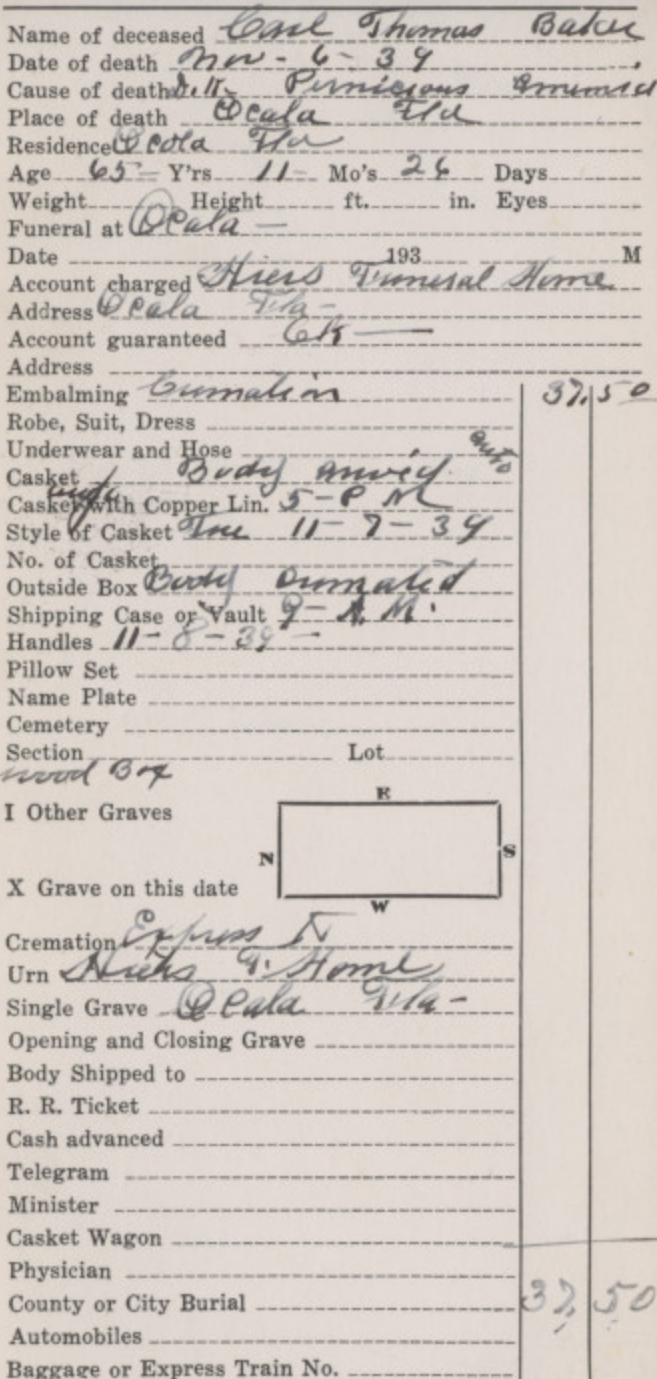 Name of deceased Carl Thomas Baker
Date of death Nov - 6 - 39
Cause of death Pernicious
Place of death Ocala Fla
Residence Ocala Fla
Age 65 - Y'rs 11 - Mo's 26 Days
Weight Height ft. in. Eyes
Funeral at Ocala -
Date 193 M
Account charged Hiers Funeral Home
Address Ocala Fla -
Account guaranteed OK
Address
Embalming Cremation 37.50
Robe, Suit, Dress
Underwear and Hose auto
Casket Body arrived
Casket with Copper Lin. 5 - P M
Style of Casket Tue 11 - 7 - 39
No. of Casket
Outside Box Body Cremated
Shipping Case or Vault 9 - A. M.
Handles 11 - 8 - 39 -
Pillow Set
Name Plate
Cemetery
Section Lot
wood Box
E
I Other Graves
N S
X Grave on this date
W
Cremation Express
Urn Hiers F. Home
Single Grave Ocala Fla -
Opening and Closing Grave
Body Shipped to
R. R. Ticket
Cash advanced
Telegram
Minister
Casket Wagon
Physician
County or City Burial 37.50
Automobiles
Baggage or Express Train No.